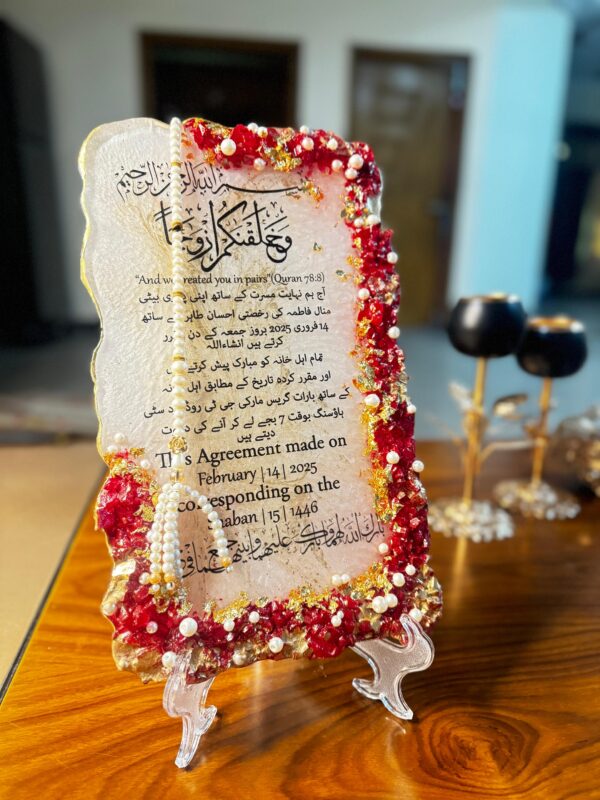 بسم الله الرحمن الرحيم
وَخَلَقْنٰكُمْ اَزْوَاجًا
"And we created you in pairs"(Quran 78:8)
آج ہم نہایت مسرت کے ساتھ اپنی بیٹی
منال فاطمہ کی رخصتی احسان طاہر کے ساتھ
14 فروری 2025 بروز جمعہ کے دن
کرتے ہیں انشاءاللہ
تمام اہل خانہ کو مبارک پیش کرتے
اور مقرر کردہ تاریخ کے مطابق اہل
کے ساتھ بارات گریس مارکی جی ٹی روڈ سٹی
ہاؤسنگ بوقت 7 بجے لے کر آنے کی
دیتے ہیں
This Agreement made on
February |14| 2025
corresponding on the
Shaban |15| 1446
بارك الله لهما وبارك عليهما وجمع بينهما في